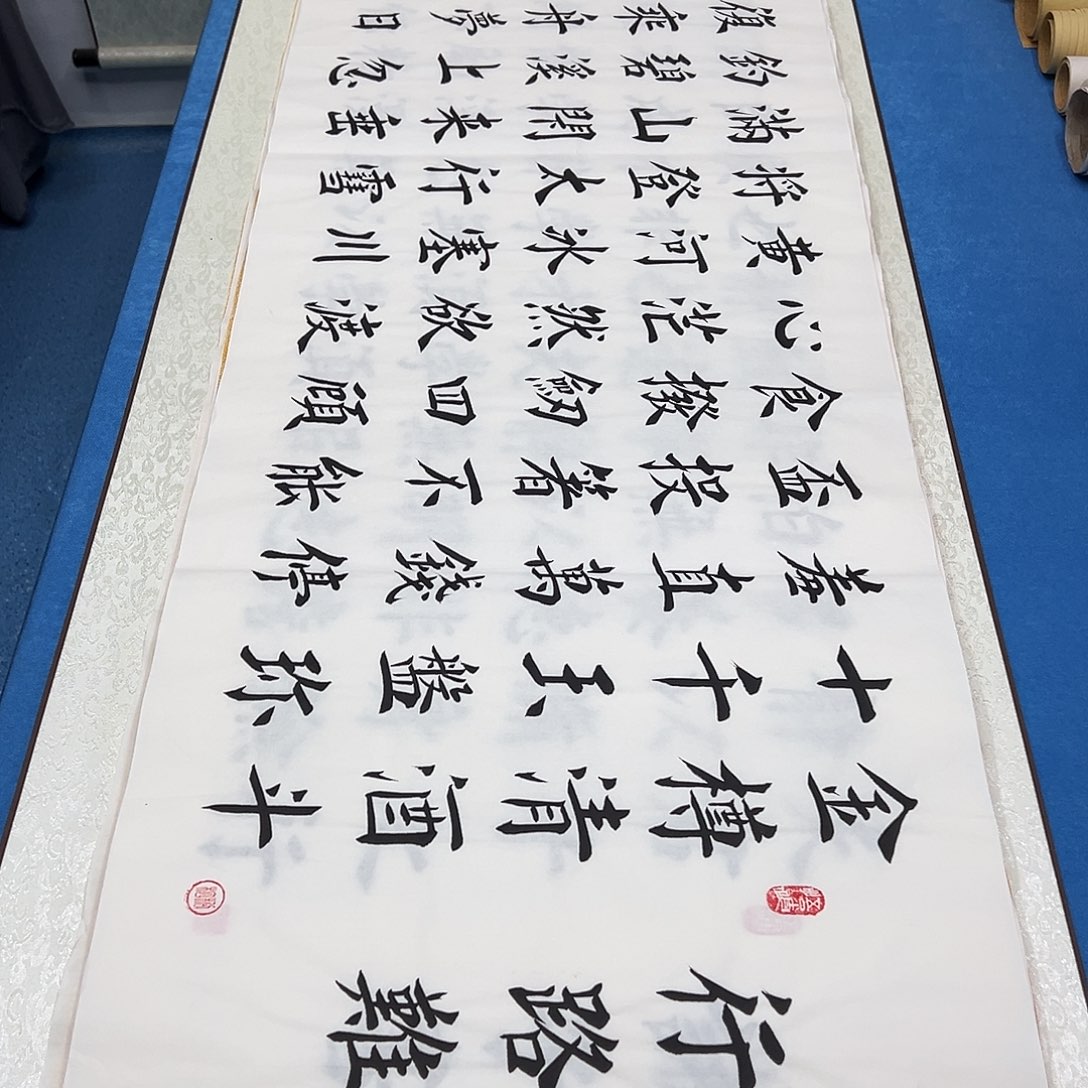 行路難
金樽清酒斗
十千玉盤珎
羞直萬錢停
盃投箸不能
食撥劒四顧
心茫然欲渡
黃河氷塞川
將登太行雪
滿山閑来垂
釣碧溪上忽
復乘舟夢日